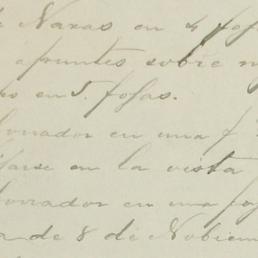 de Navas en 4 fojas
apuntes sobre m
en 5. fojas.
borrador en una f
en la vista
borrador en una foj
de 8 de Nobiem